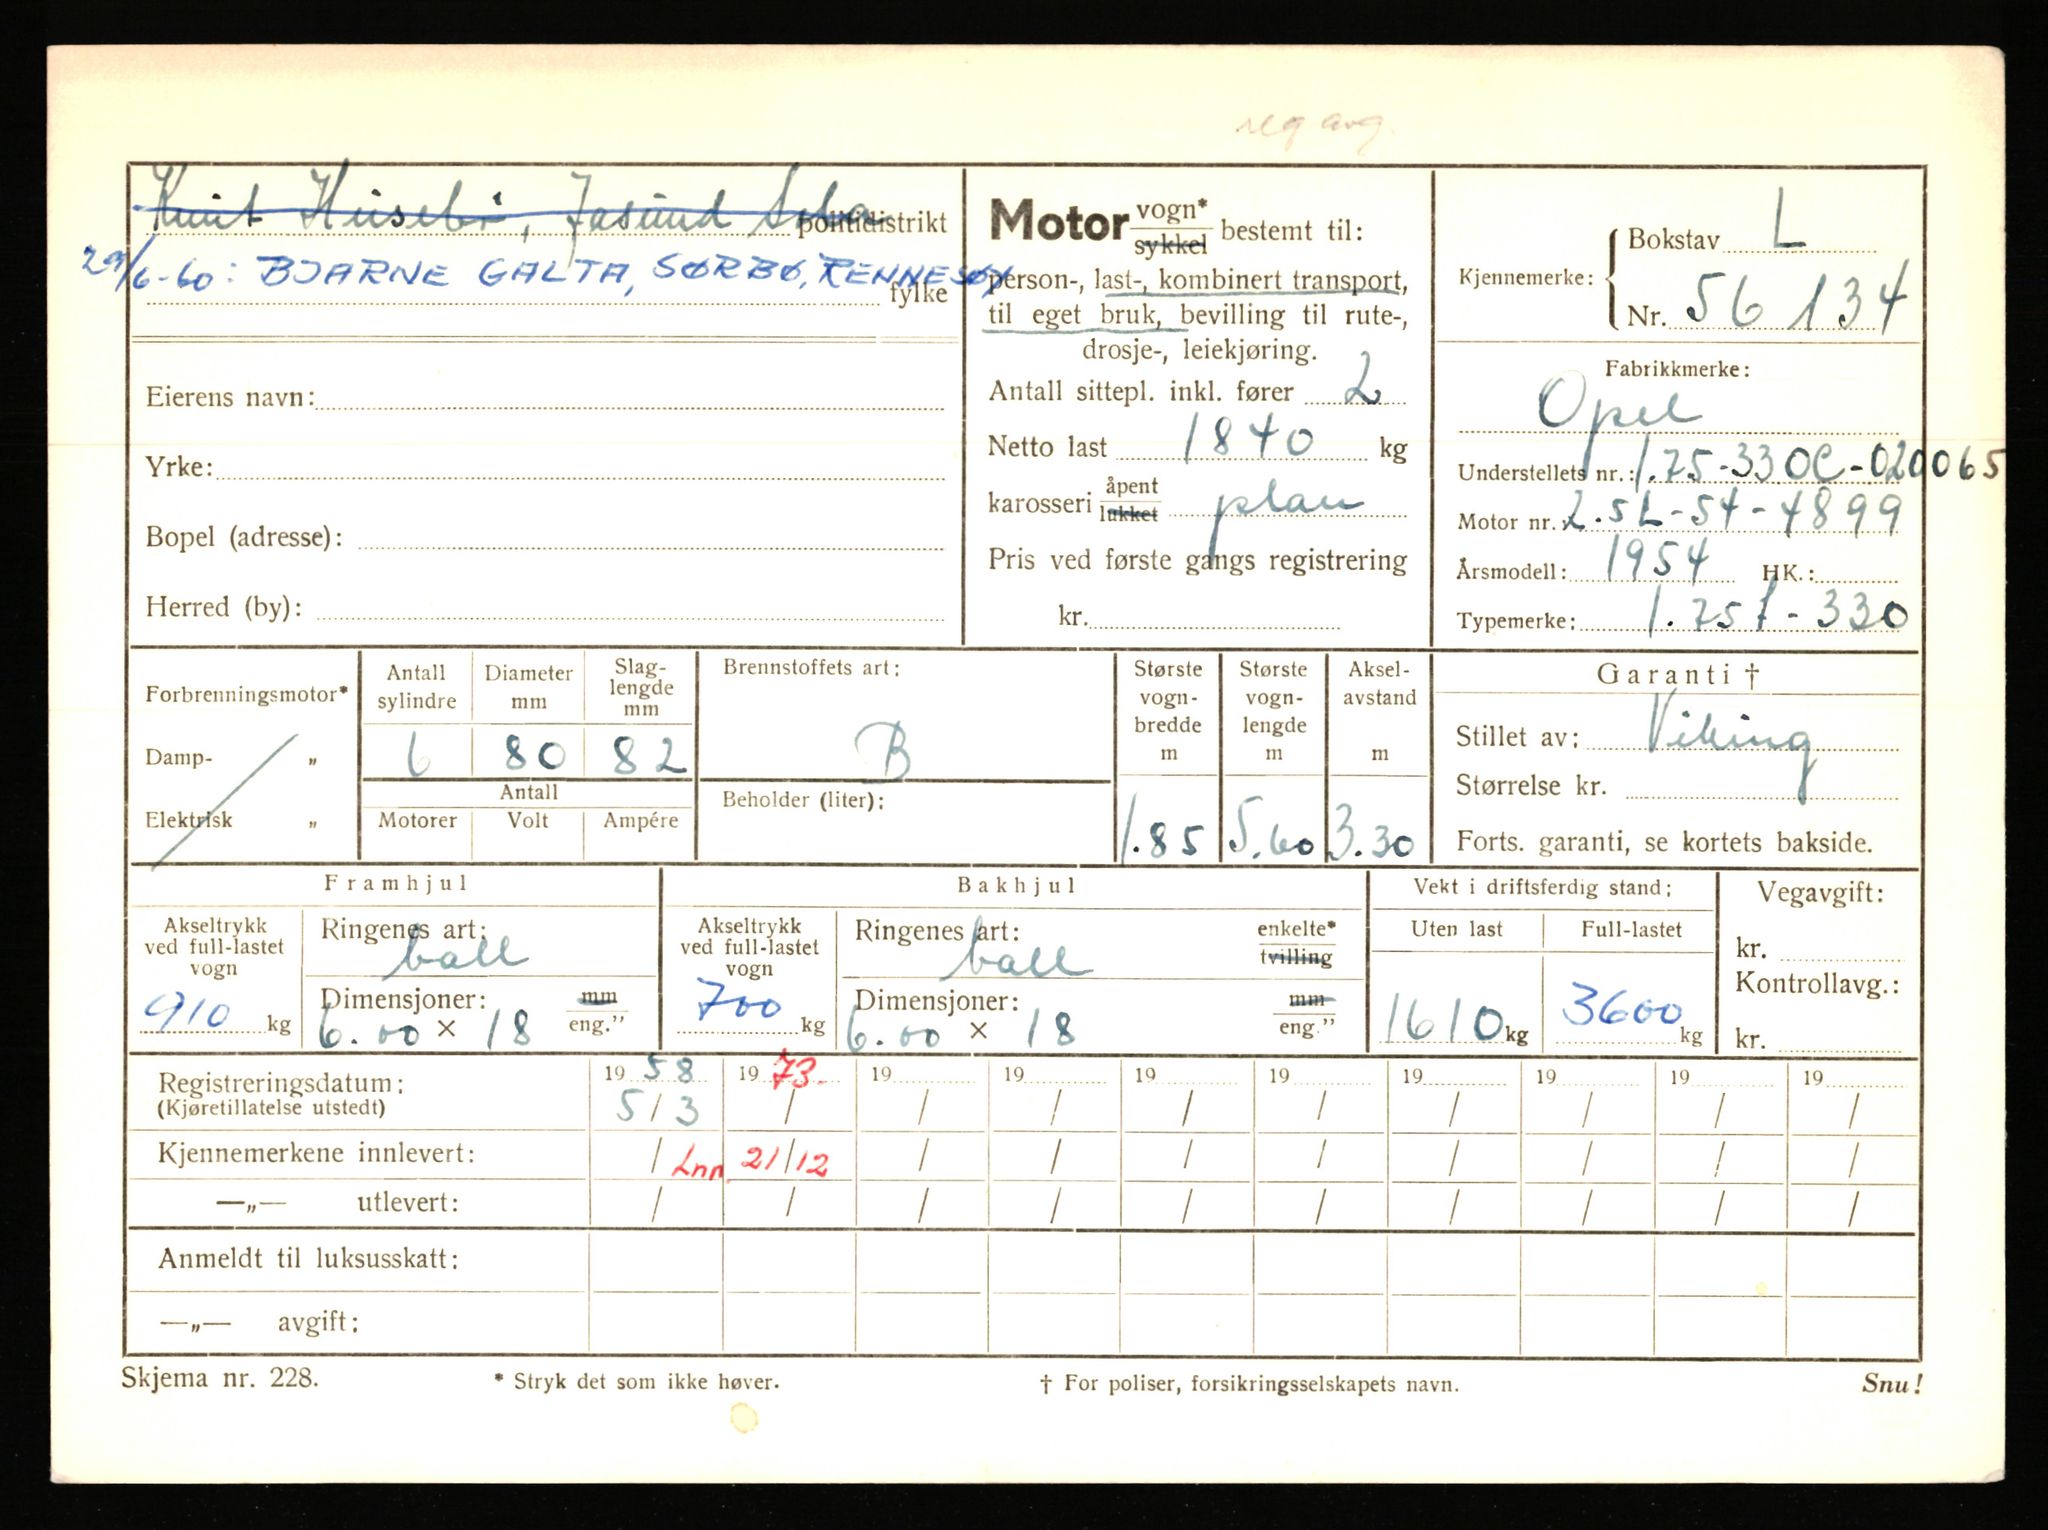 reg avg.
Knut Husebø, Jåsund Sola politidistrikt
29/6-60: BJARNE GALTA, SØRBØ, RENNESØY
fylke
Eierens navn:
Yrke:
Bopel (adresse):
Herred (by):
Motor vogn* sykkel bestemt til:
person-, last-, kombinert transport,
til eget bruk, bevilling til rute-,
drosje-, leiekjøring.
Antall sittepl. inkl. fører 2
Netto last 1840 kg
karosseri åpent lukket plan
Pris ved første gangs registrering
kr.
Kjennemerke: Bokstav L
Nr. 56134
Fabrikkmerke:
Opel
Understellets nr.: 1.75-330C-020065
Motor nr. 2.5L-54-4899
Årsmodell: 1954 HK.:
Typemerke: 1.75t-330
Forbrenningsmotor*
Damp- „
Elektrisk „
Antall sylindre Diameter mm Slag-lengde mm
6 80 82
Antall
Motorer Volt Ampére
Brennstoffets art:
B
Beholder (liter):
Største vogn-bredde m Største vogn-lengde m Aksel-avstand m
1.85 5.60 3.30
Garanti †
Stillet av: Viking
Størrelse kr.
Forts. garanti, se kortets bakside.
Framhjul
Akseltrykk ved full-lastet vogn
910 kg
Ringenes art: ball
Dimensjoner: mm eng."
6.00 × 18
Bakhjul
Akseltrykk ved full-lastet vogn
700 kg
Ringenes art: ball enkelte* tvilling
Dimensjoner: mm eng."
6.00 × 18
Vekt i driftsferdig stand:
Uten last Full-lastet
1610 kg 3600 kg
Vegavgift:
kr.
Kontrollavg.:
kr.
Registreringsdatum: 19 58 19 73. 19 19 19 19 19 19 19 19
(Kjøretillatelse utstedt) 5/3 / / / / / / / / /
Kjennemerkene innlevert: / Inn. 21/12 / / / / / / / /
—„— utlevert: / / / / / / / / / /
Anmeldt til luksusskatt:
—„— avgift:
Skjema nr. 228. * Stryk det som ikke høver. † For poliser, forsikringsselskapets navn. Snu!